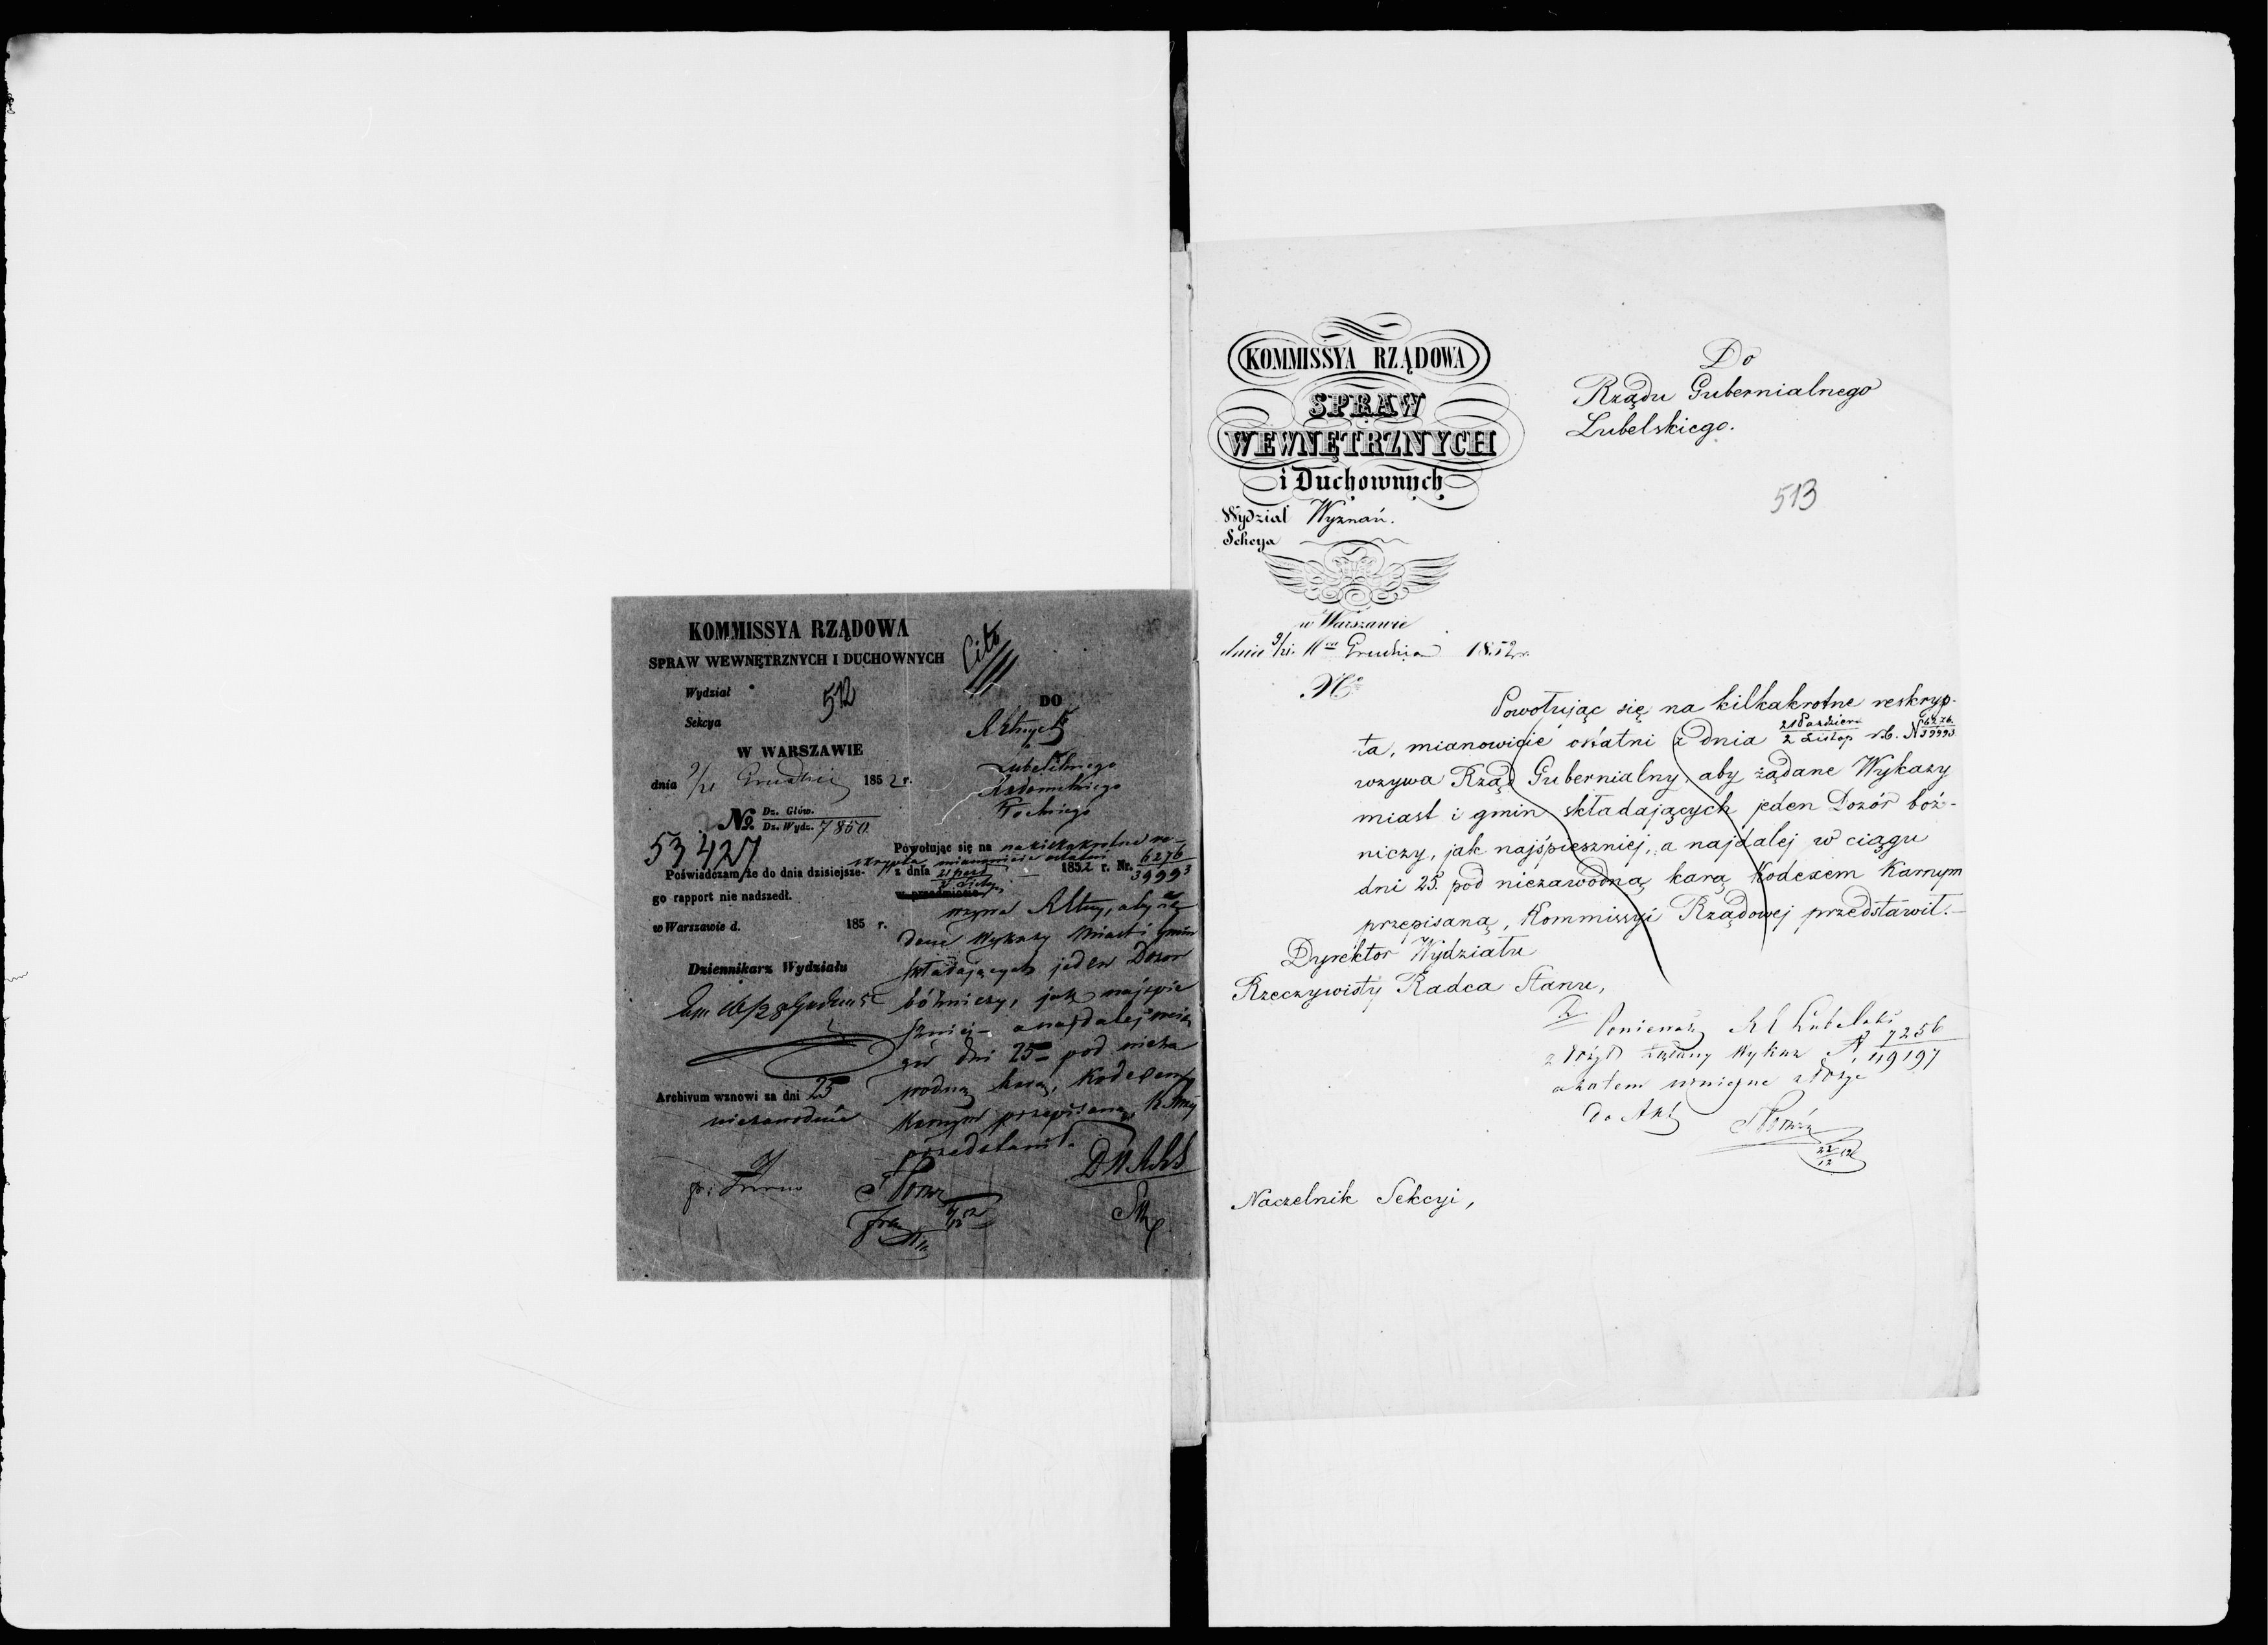 KOMMISSYA RZĄDOWA
SPRAW WEWNĘTRZNYCH I DUCHOWNYCH
Cito
Wydział
512
Sekcya
DO
W WARSZAWIE
Lubelskiego
dnia 9/21 Grudnia 1852 r.
Radomskiego
Płockiego
No. Dz. Głów.
Dz. Wydz. 7850
53427
Powołując się na na kilkakrotne re-
skrypta mianowicie ostatni
Poświadczam że do dnia dzisiejsze-
z dnia 21 paźd. 1852 r. Nr. 6276
2 Listop. 39993
go rapport nie nadszedł.
w przedmiocie
wzywa RGlny, aby żą
w Warszawie d. 185 r.
dane Wykazy Miast i Gmin
Dziennikarz Wydziału
składających jeden Dozor
bóżniczy, jak najspie
szniej a najdalej w cią
gu dni 25 pod nieza
wodną karą, Kodexem
Archivum wznowi za dni 25
niezawodnie
Karnym przepisaną,
przedstawił.
KOMMISSYA RZĄDOWA
SPRAW
WEWNĘTRZNYCH
i Duchownych
Wydział Wyznań.
Sekcya
w Warszawie
dnia 9/21 Grudnia 1852 r.
No
Do
Rządu Gubernialnego
Lubelskiego.
513
Powołując się na kilkakrotne reskryp-
ta, mianowicie ostatni z dnia 21 Paździer. / 2 Listop r.b. N 6276 / 39993
wzywa Rząd Gubernialny, aby żądane Wykazy
miast i gmin składających jeden Dozór boż-
niczy, jak najśpieszniej, a najdalej w ciągu
dni 25. pod niezawodną karą Kodexem Karnym
przepisaną, Kommissyi Rządowej przedstawił.–
Dyrektor Wydziału
Rzeczywisty Radca Stanu,
Ponieważ RG Lubelski
złożył żądany Wykaz N 7256 / 49197
a zatem
do Akt
22/12 52
Naczelnik Sekcyi,